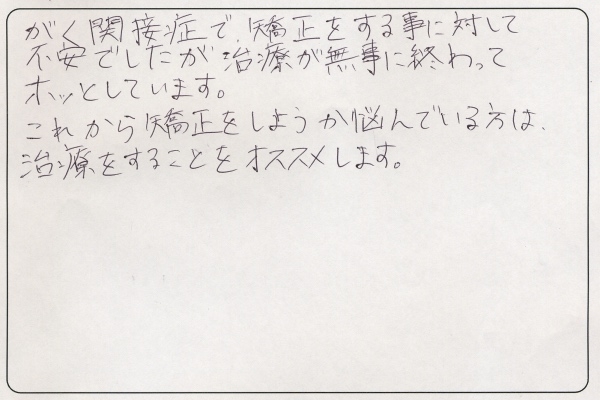 がく関接症で、矯正をする事に対して
不安でしたが治療が無事に終わって
ホッとしています。
これから矯正をしようか悩んでいる方は、
治療をすることをオススメします。